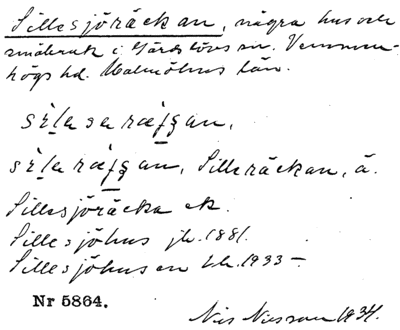 Sillesjöräckan, några hus och
småbruk i Gärdslövs sn. Vemmen-
högs hd. Malmöhus län.
Silleräckan, ä.
Sillesjöräcka ek.
Sillesjöhus jb. 1881.
Sillesjöhusen 1933 –
Nr 5864.
Nils Nilsson 1934.